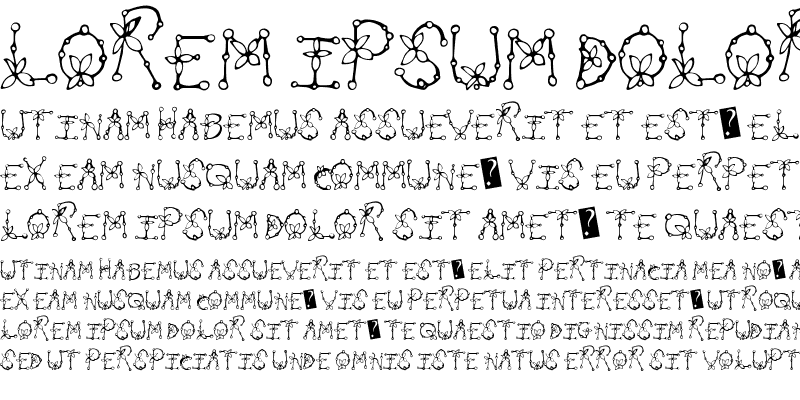 LOREM IPSUM DOLOR
UTINAM HABEMUS ASSUEVERIT ET EST? EL
EX EAM NUSQUAM COMMUNE? VIS EU PERPET
LOREM IPSUM DOLOR SIT AMET? TE QUAEST
UTINAM HABEMUS ASSUEVERIT ET EST? ELIT PERTINACIA MEA NO? A
EX EAM NUSQUAM COMMUNE? VIS EU PERPETUA INTERESSET? UTROQU
LOREM IPSUM DOLOR SIT AMET? TE QUAESTIO DIGNISSIM REPUDIAN
SED UT PERSPICIATIS UNDE OMNIS ISTE NATUS ERROR SIT VOLUPT